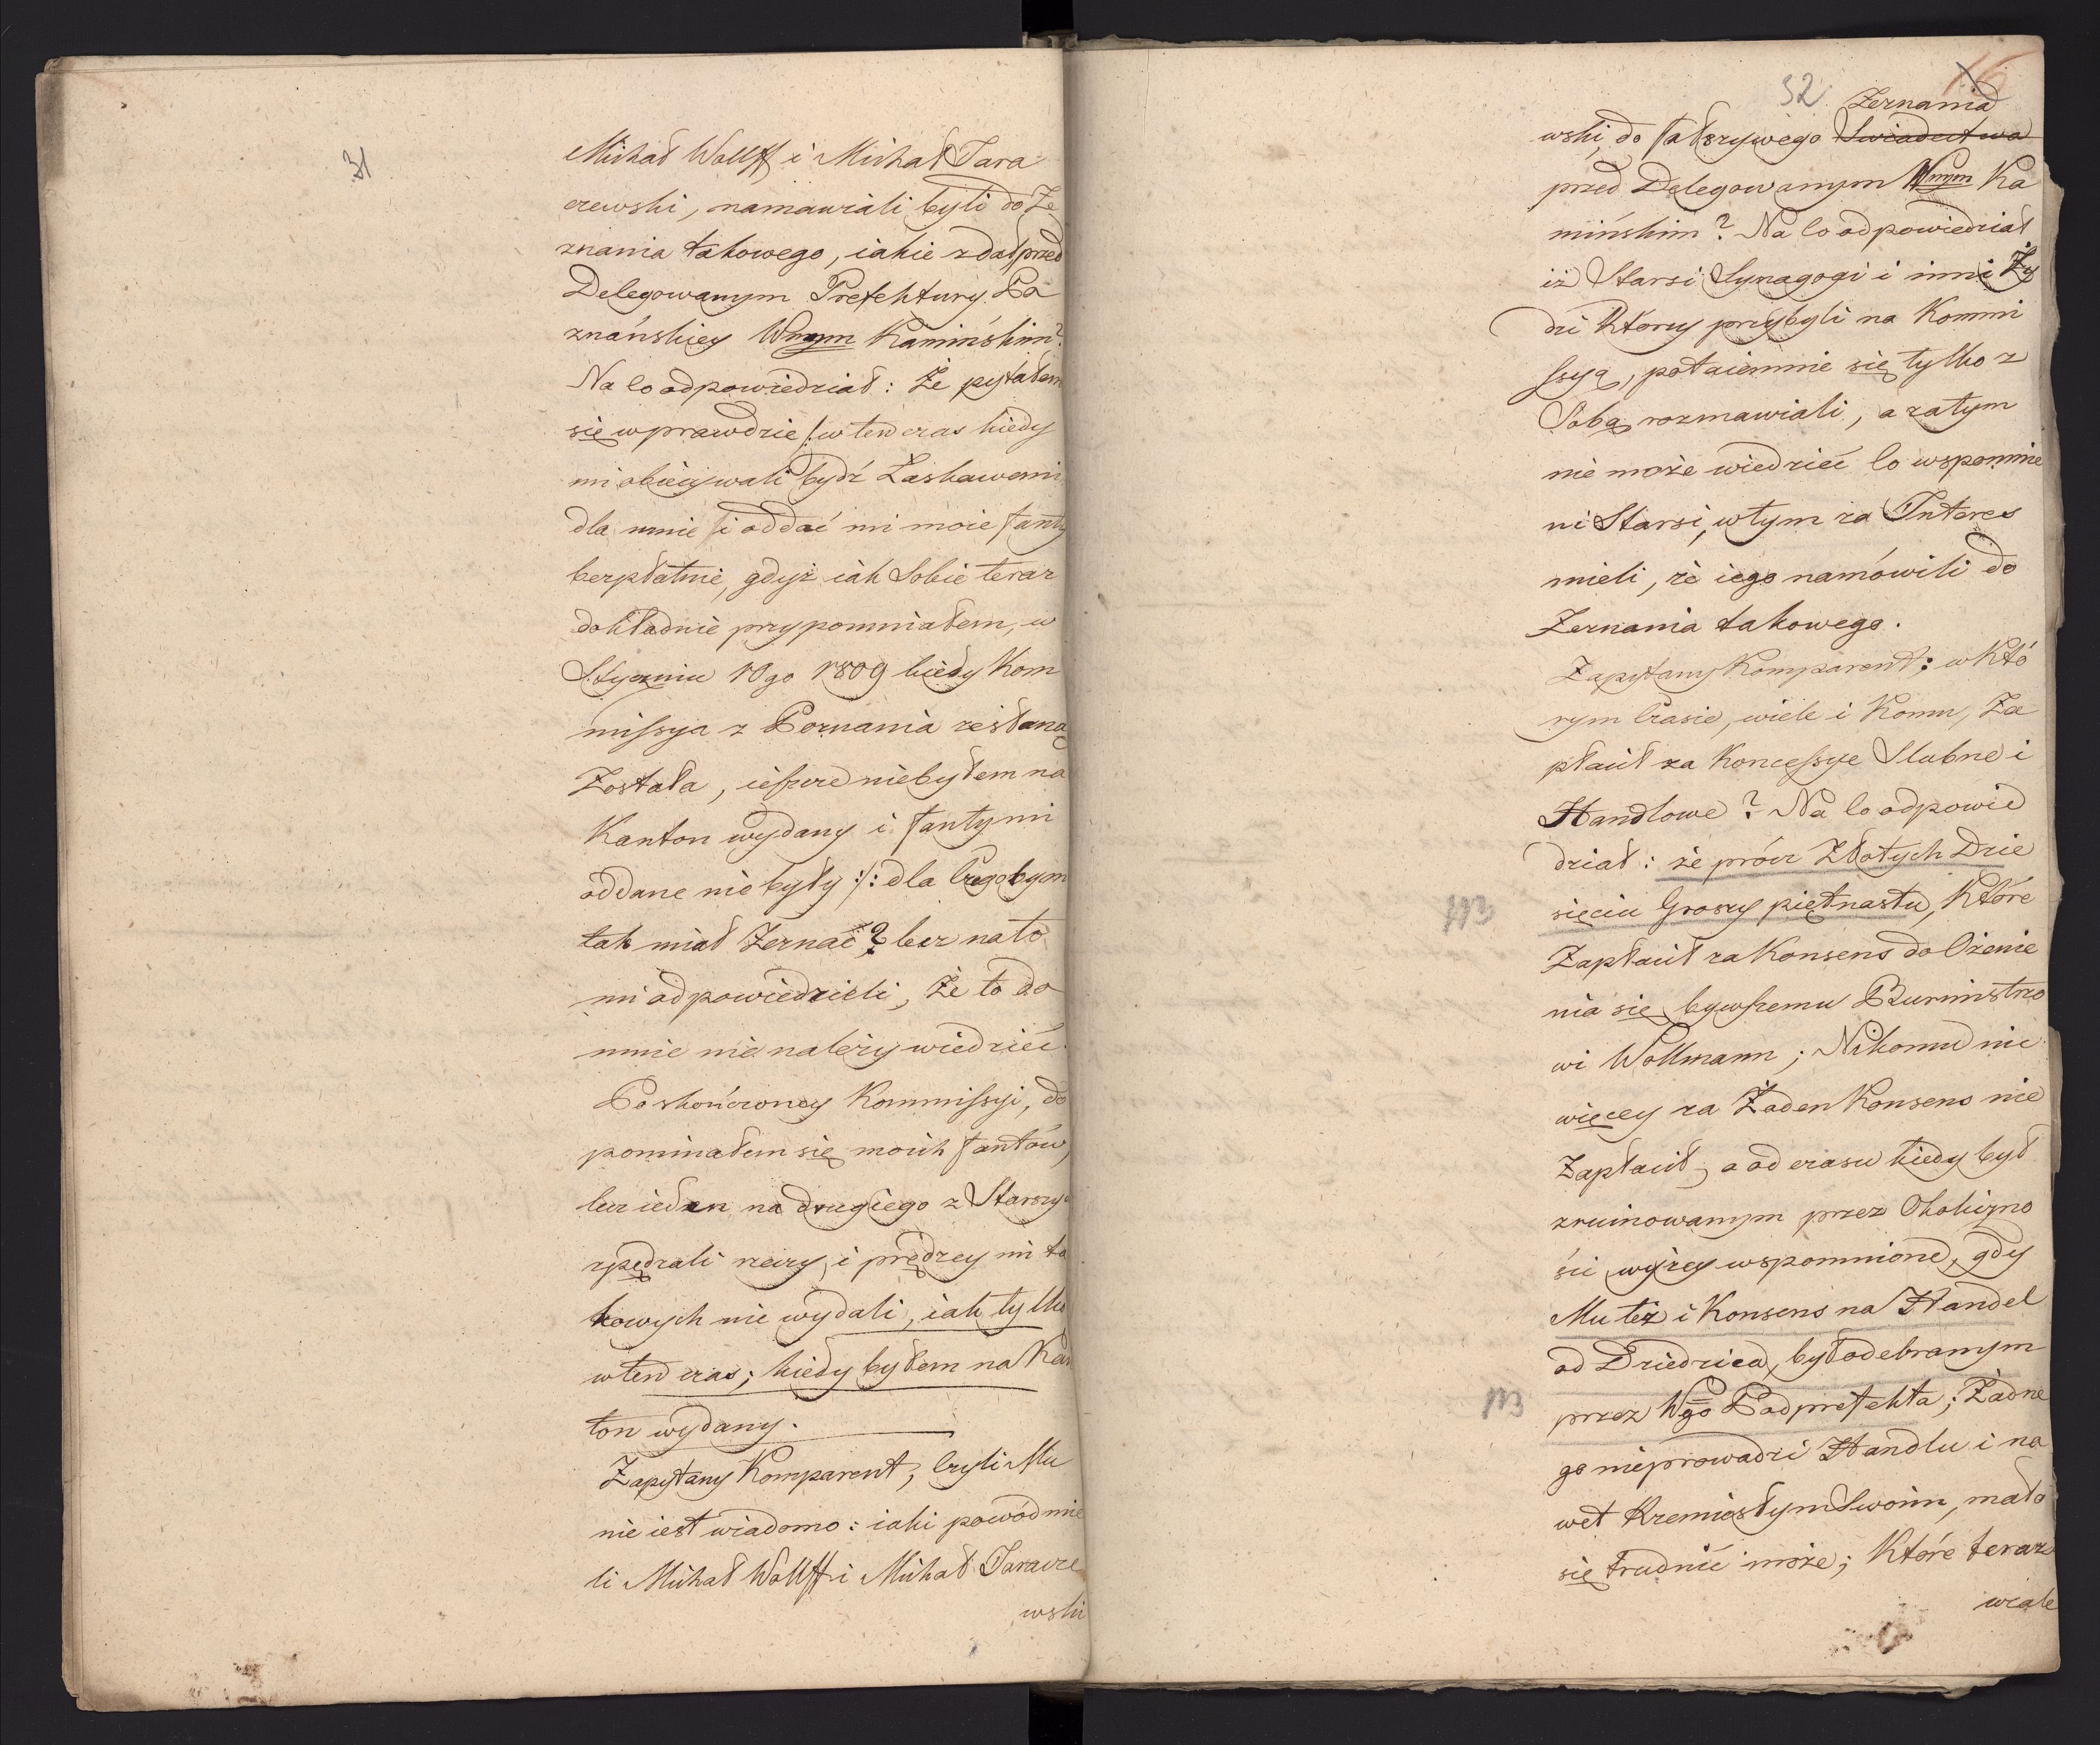 31
Michał Wollff i Michał Tara
czewski, namawiali byli do Ze
znania takowego, iakie zdał przed
Delegowanym Prefektury Po
znańskiey Wnym Kamińskim?
Na co odpowiedział: Że pytałem
się wprawdzie /: w ten czas kiedy
mi obiecywali bydź Łaskawemi
dla mnie i oddać mi moie fanty
bezpłatnie, gdyż iak Sobie teraz
dokładnie przypomniałem, w
Styczniu 10go 1809 kiedy Kom
missya z Poznania zesłaną
Została, ieszcze niebyłem na
Kanton wydany i fanty mi
oddane nie były :/: dla czego bym
tak miał Zeznać? lecz na to
mi odpowiedzieli, Że to do
mnie nie należy wiedzieć.
Po skończoney Kommissyi, do
pominałem się moich fantów,
lecz ieden na drugiego z Starszych
spędzali rzeczy, i prędzey mi ta
kowych nie wydali, iak tylko
w ten czas; kiedy byłem na Kan
ton wydany.
Zapytany Komparent, czyli Mu
nie iest wiadomo: iaki powód mie
li Michał Wollff i Michał Taracze
wski
32 16
Zeznania
wski, do fałszywego Swiadectwa
przed Delegowanym Wnym Ka
mińskim? Na co odpowiedział
iż Starsi Synagogi i inni Ży
dzi Którzy przybyli na Kommi
ssyą, potaiemnie się tylko z
Sobą rozmawiali, a zatym
nie może wiedzieć co wspomnie
ni Starsi, w tym za Interes
mieli, że iego namówili do
Zeznania takowego.
Zapytany Komparent: w Któ
rym Czasie, wiele i Komu, Za
płacił za Koncessye Slubne i
Handlowe? Na co odpowie
dział: że prócz Złotych Dzie
sięciu Groszy piętnastu, Które
Zapłacił za Konsens do Ożenie
nia się, bywszemu Burmistrzo
wi Wollmann; Nikomu nic
więcey za Żaden Konsens nie
Zapłacił, a od czasu kiedy był
zruinowanym przez Okoliczno
ści wyżey wspomnione, gdy
Mu też i Konsens na Handel
od Dziedzica, był odebranym
przez Wgo Podprefekta; Żadne
go nieprowadzi Handlu i na
wet Rzemiosłym Swoim, mało
się trudnić może; Które teraz
wiele